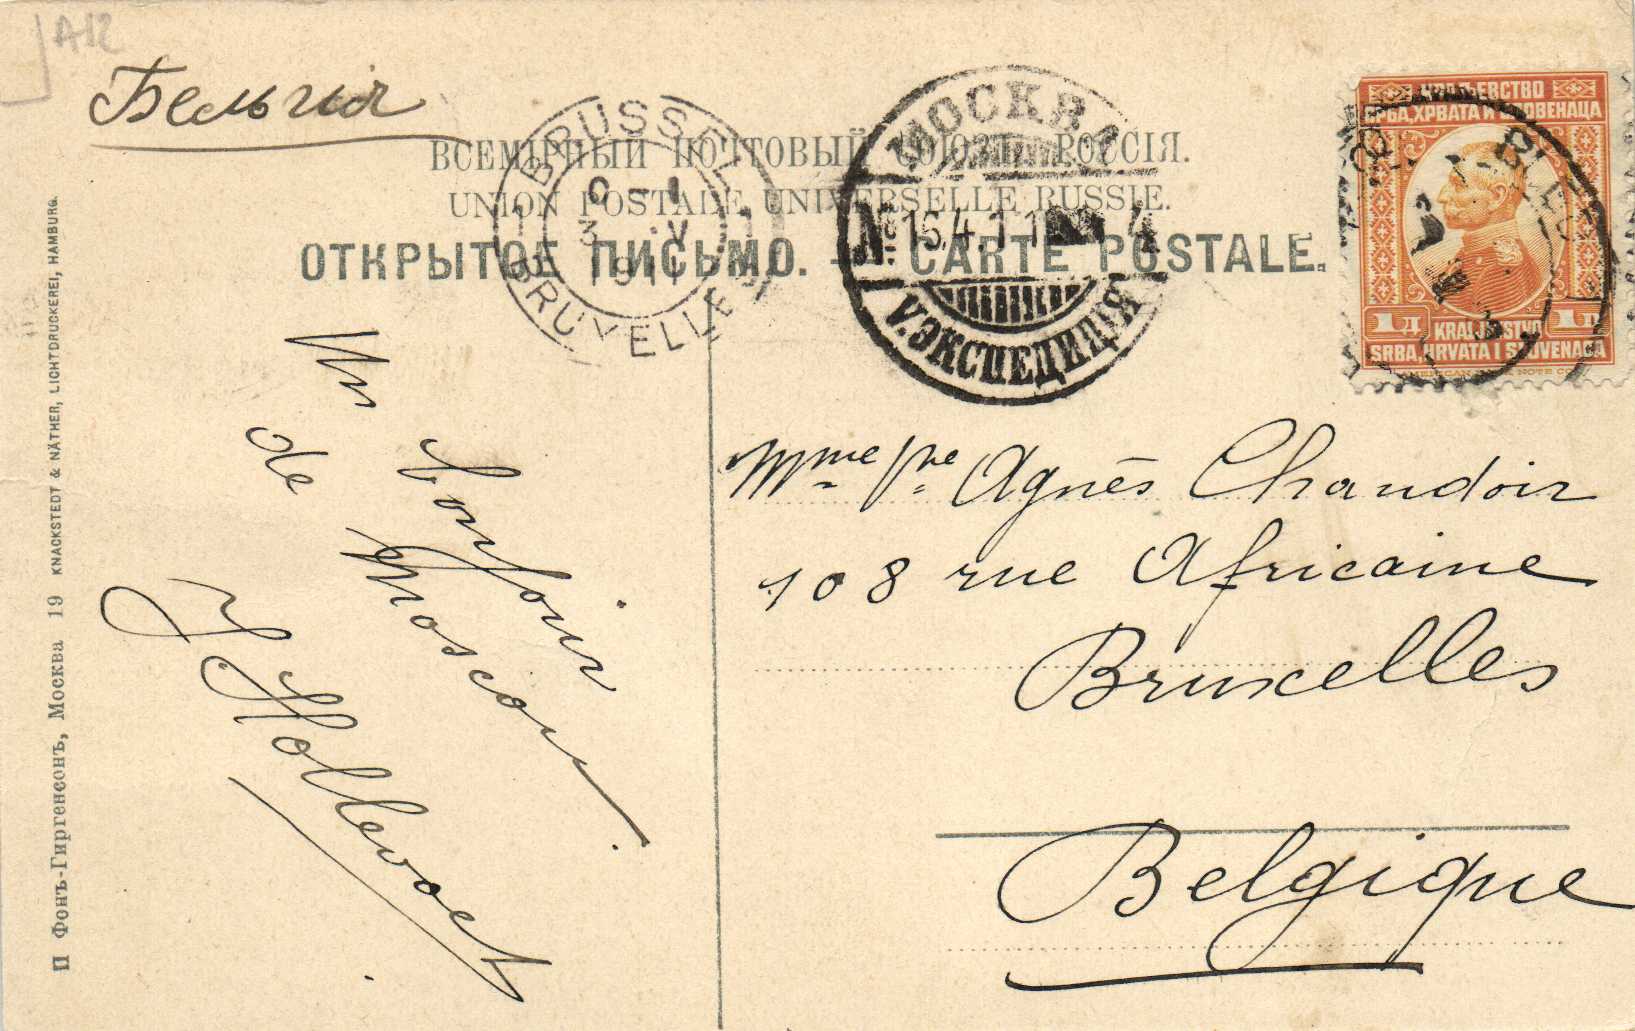 A12
Бельгія
ВСЕМІРНЫЙ ПОЧТОВЫЙ СОЮЗЪ. РОССІЯ.
UNION POSTALE UNIVERSELLE RUSSIE.
ОТКРЫТОЕ ПИСЬМО. — CARTE POSTALE.
BRUSSEL
1 1
3 V
1911
BRUXELLES
МОСКВА
V. ЭКСПЕДИЦІЯ
КРАЉЕВСТВО
СРБА, ХРВАТА И СЛОВЕНАЦА
1 Д 1 D
KRALJEVSTVO
SRBA, HRVATA I SLOVENACA
AMERICAN BANK NOTE CO.
Un bonjour
de Moscou.
J Hollevoet
Mme Vve Agnès Chandoir
108 rue Africaine
Bruxelles
Belgique
П Фонъ-Гиргенсонъ, Москва 19 KNACKSTEDT & NÄTHER, LICHTDRUCKEREI, HAMBURG.